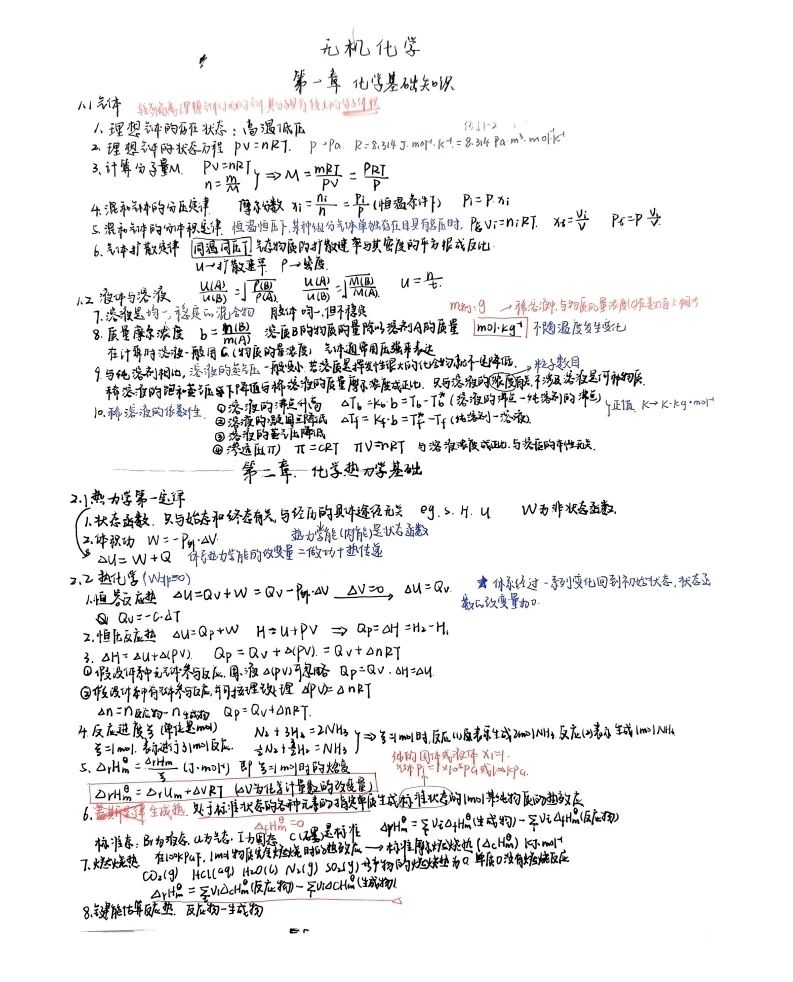 无机化学
第一章 化学基础知识
1.1 气体
1. 理想气体的存在状态：高温低压 例1-2
2. 理想气体的状态方程 PV=nRT. P→Pa. R=8.314 J·mol⁻¹·K⁻¹=8.314 Pa·m³·mol⁻¹K⁻¹
3. 计算分子量M. PV=nRT n=m/M } ⇒ M=mRT/PV=ρRT/P
4. 混和气体的分压定律 摩尔分数 xi=ni/n=Pi/P (恒温条件下) Pi=P xi
5. 混和气体的分体积定律 恒温恒压下,某种组分气体单独存在且具有总压时, P总Vi=niRT.
6. 气体扩散定律 同温同压下 气态物质的扩散速率与其密度的平方根成反比.
u→扩散速率 ρ→密度.
u(A)/u(B)=√ρ(B)/ρ(A) u(A)/u(B)=√M(B)/M(A)
1.2 液体与溶液
7. 溶液是均一,稳定的混合物 胶体均一,但不稳定
8. 质量摩尔浓度 b=n(B)/m(A) 溶质B的物质的量除以溶剂A的质量 mol·kg⁻¹ 不随温度发生变化
在计算时溶液一般用C(物质的量浓度) 气体通常用压强来表达
9. 与纯溶剂相比,溶液的蒸气压一般更小,若溶质是挥发性很大的化合物就不一定降低. 粒子数目
稀溶液的饱和蒸气压下降值与稀溶液的质量摩尔浓度成正比. 只与溶液的浓度有关,不涉及溶质是何种物质.
10. 稀溶液的依数性 ①溶液的沸点升高 ΔTb=Kb·b=Tb-Tb* (溶液的沸点-纯溶剂的沸点)
②溶液的凝固点降低 ΔTf=Kf·b=Tf*-Tf (纯溶剂-溶液) }正值 K→K·kg·mol⁻¹
③溶液的蒸气压降低
④渗透压(π) π=CRT πV=nRT 与溶液浓度成正比,与溶质的本性无关.
第二章. 化学热力学基础
2.1 热力学第一定律
1. 状态函数. 只与始态和终态有关,与经历的具体途径无关 eg. S. H. U W为非状态函数.
2. 体积功 W=-P外·ΔV. 热力学能(内能)是状态函数
ΔU=W+Q 体系热力学能的改变量=做功+热传递
2.2 热化学 (W非=0)
1. 恒容反应热 ΔU=Qv+W=Qv-P外·ΔV ΔV=0→ ΔU=Qv ★体系经过一系列变化回到初始状态,状态函
Qv=-C·ΔT 数的改变量为0.
2. 恒压反应热 ΔU=Qp+W H=U+PV ⇒ Qp=ΔH=H₂-H₁
3. ΔH=ΔU+Δ(PV). Qp=Qv+Δ(PV).=Qv+ΔnRT
①假设体系中无气体参与反应,固.液Δ(PV)可忽略 Qp=Qv. ΔH=ΔU.
②假设体系中有气体参与反应, Δ(PV)=ΔnRT
Δn=n反应物-n生成物 Qp=Qv+ΔnRT.
4. 反应进度ξ (单位是mol) N₂+3H₂=2NH₃
ξ=1mol.表示进行了1mol反应. ½N₂+3/2H₂=NH₃ } ⇒ ξ=1mol时,反应(1)表示生成2molNH₃ 反应(2)表示生成1molNH₃
5. ΔrHmθ=ΔrHm/ξ (J·mol⁻¹) 即ξ=1mol时的焓变
ΔrHmθ=ΔrUm+ΔνRT (Δν为化学计量数的改变量)
6. 生成热. 处于标准状态的各种元素的指定单质生成标准状态的1mol某纯物质的热效应
ΔfHmθ=0
标准态: Br为液态. Cl为气态. I为固态. C(石墨)是标准 ΔrHmθ=∑νiΔfHmθ(生成物)-∑νiΔfHmθ(反应物)
7. 燃烧热 在100kPa下,1mol物质完全燃烧时的热效应→标准摩尔燃烧热(ΔcHmθ) kJ·mol⁻¹
CO₂(g) HCl(aq) H₂O(l) N₂(g) SO₂(g)等产物的燃烧热为0
ΔrHmθ=∑νiΔcHmθ(反应物)-∑νiΔcHmθ(生成物)
8. 键能估算反应热. 反应物-生成物